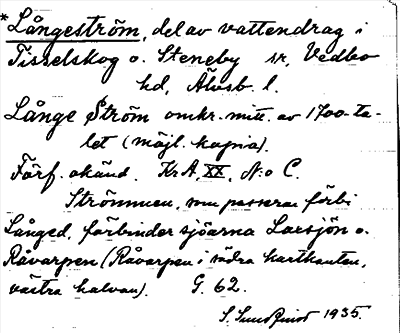 *Långeström, del av vattendrag i
Tisselskog o. Steneby sr, Vedbo
hd, Älvsb. l.
Långe Ström omkr. mitt. av 1700-ta-
let (möjl. kopia).
Förf. okänd. KrA, XX, N:o C.
Strömmen, som passerar förbi
Långed, förbinder sjöarna Laxsjön o.
Råvarpen (Råvarpen i södra kartkanten,
västra halvan). G. 62.
S. Sundqvist 1935.